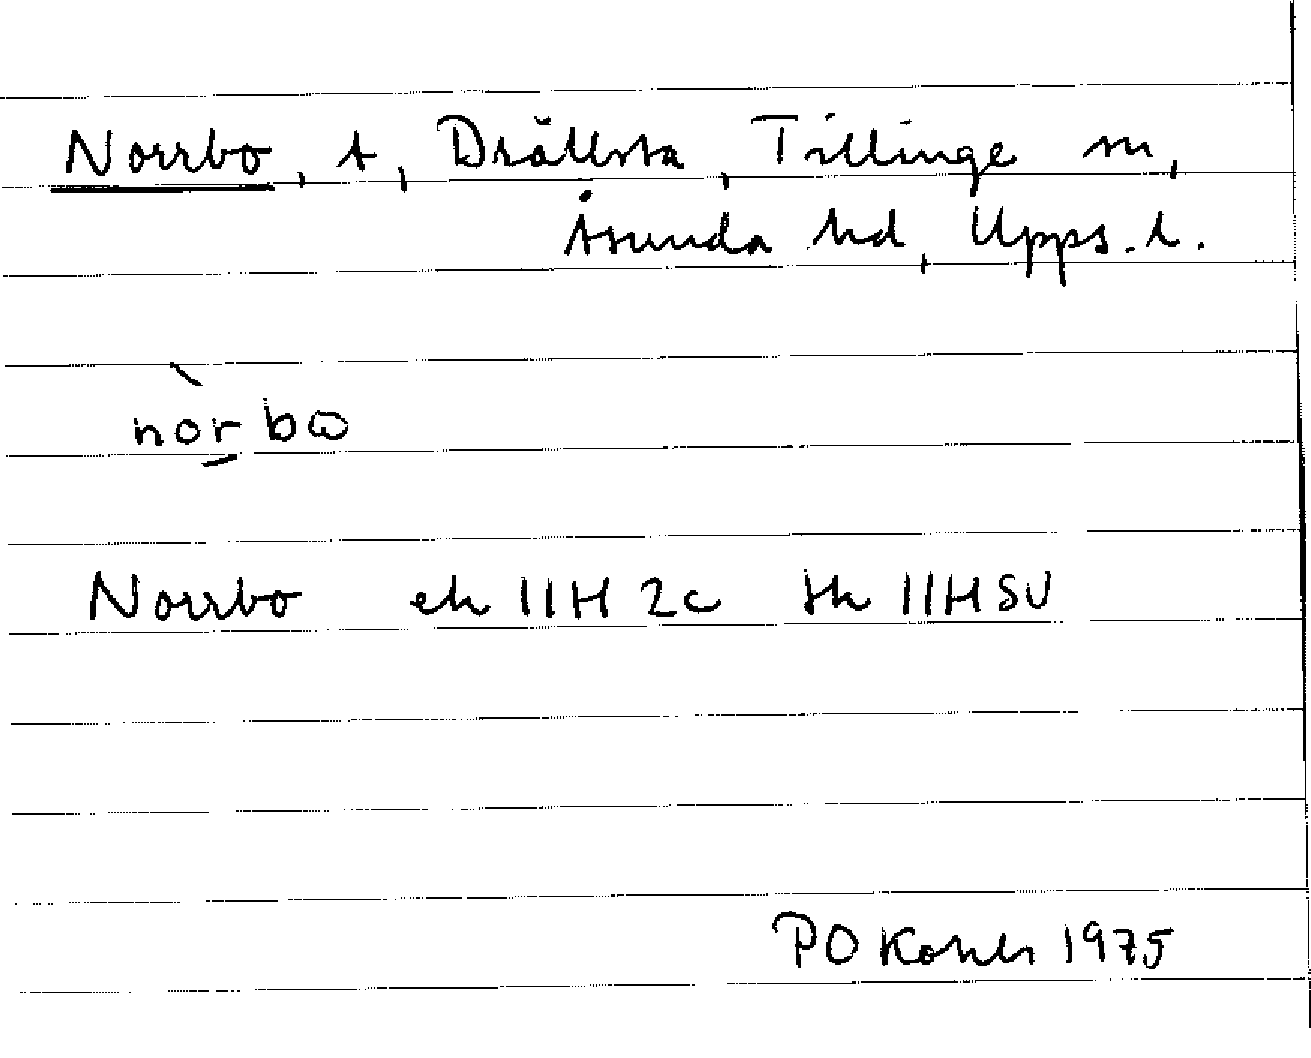 Norrbo, t, Drällsta, Tillinge sn,
Åsunda hd, Upps. l.
nòr bɷ
Norrbo ek 11H 2c tk 11HSV
PO 1975